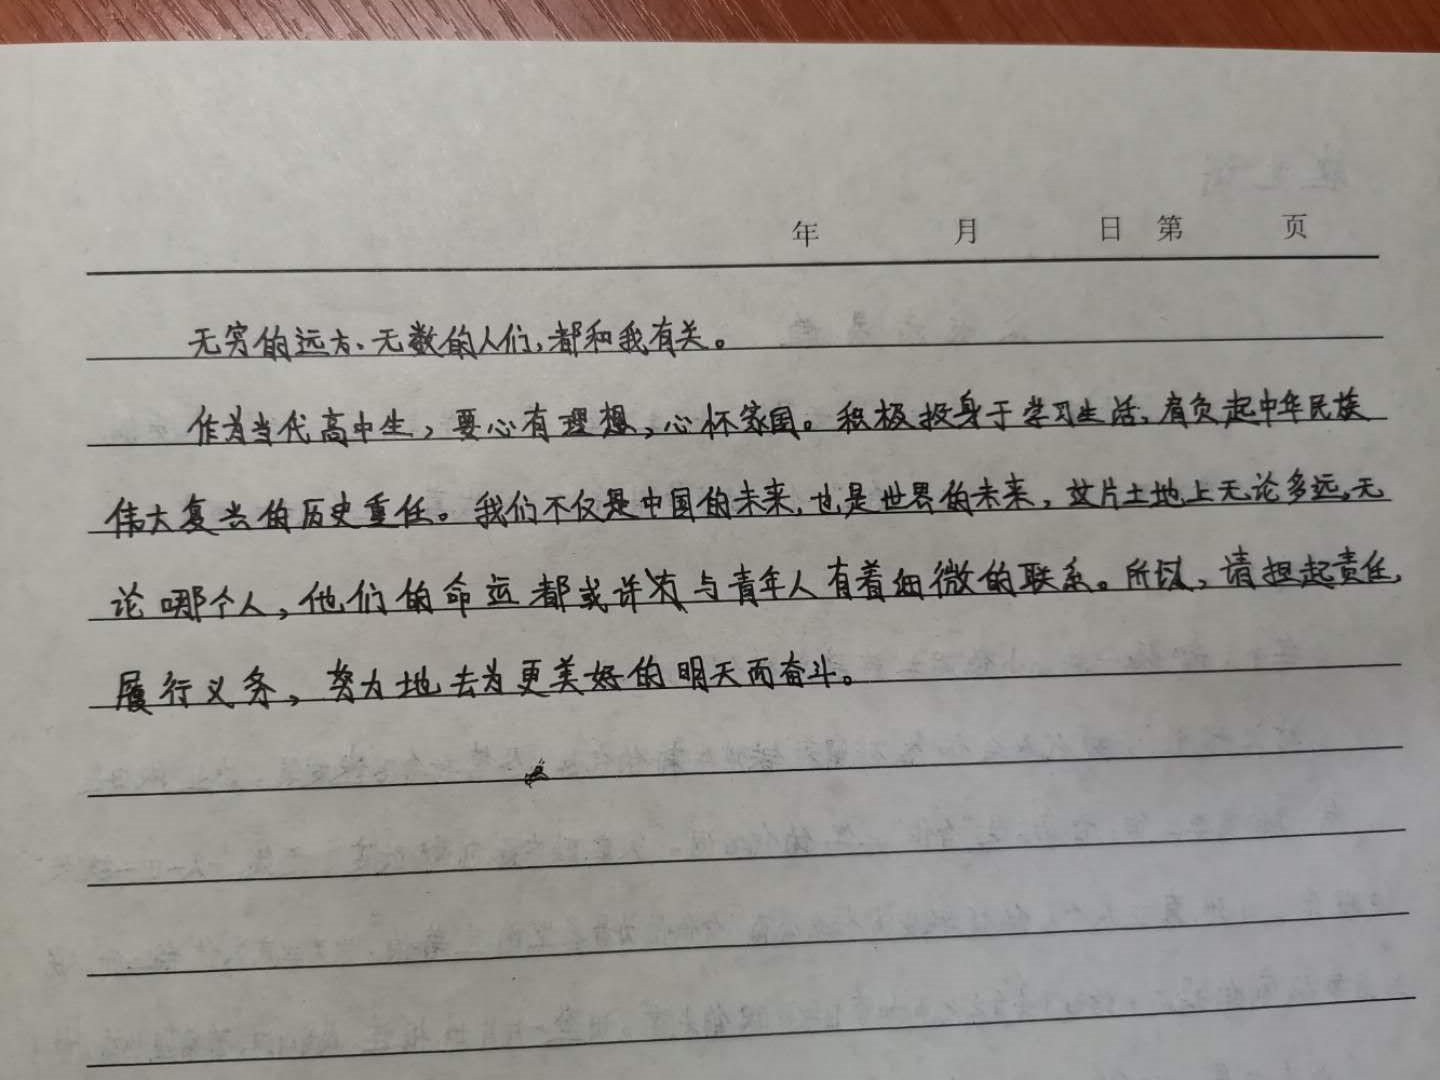 年 月 日 第 页
无穷的远方、无数的人们,都和我有关。
作为当代高中生,要心有理想,心怀家国。积极投身于学习生活,肩负起中华民族
伟大复兴的历史重任。我们不仅是中国的未来,也是世界的未来,这片土地上无论多远,无
论哪个人,他们的命运都或许有与青年人有着细微的联系。所以,请担起责任,
履行义务,努力地去为更美好的明天而奋斗。